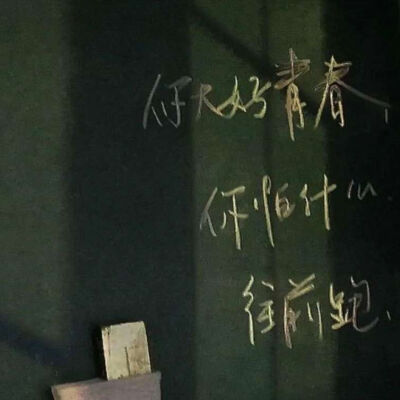 你大好青春、
你怕什么、
往前跑、